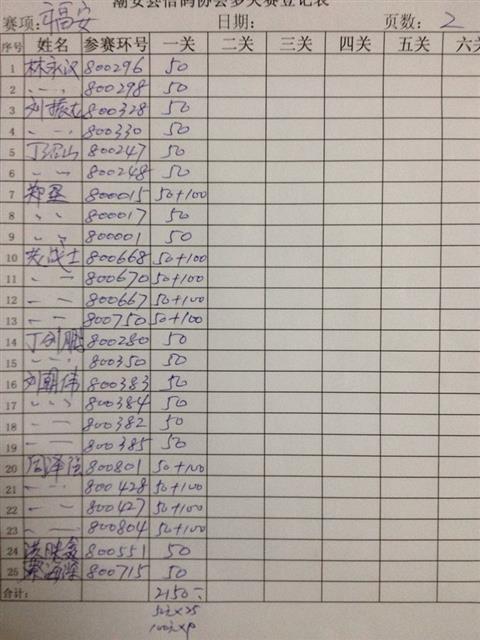 潮安县信鸽协会多关赛登记表
赛项: 福安 日期: 页数: 2
序号 姓名 参赛环号 一关 二关 三关 四关 五关 六关
1 林永汉 800296 50
2 〃 〃 800298 50
3 刘振龙 800328 50
4 〃 〃 800330 50
5 丁绍山 800247 50
6 〃 〃 800248 50
7 郑 800015 50+100
8 〃 〃 800017 50
9 〃 〃 800001 50
10 战士 800668 50+100
11 〃 〃 800670 50+100
12 〃 〃 800667 50+100
13 〃 〃 800750 50+100
14 丁利鹏 800280 50
15 〃 〃 800350 50
16 刘朝伟 800383 50
17 〃 〃 800384 50
18 〃 〃 800382 50
19 〃 〃 800385 50
20 周泽强 800801 50+100
21 〃 〃 800428 50+100
22 〃 〃 800427 50+100
23 〃 〃 800804 50+100
24 洪胜 800551 50
25 海深 800715 50
合计: 2150
50元×25
100元×9